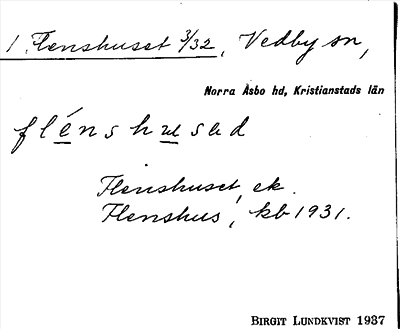 1 Flenshuset 3/32, Vedby sn,
Norra Åsbo hd, Kristianstads län
flénshusəd
Flenshuset, ek.
Flenshus, kb 1931.
BIRGIT LUNDKVIST 1937